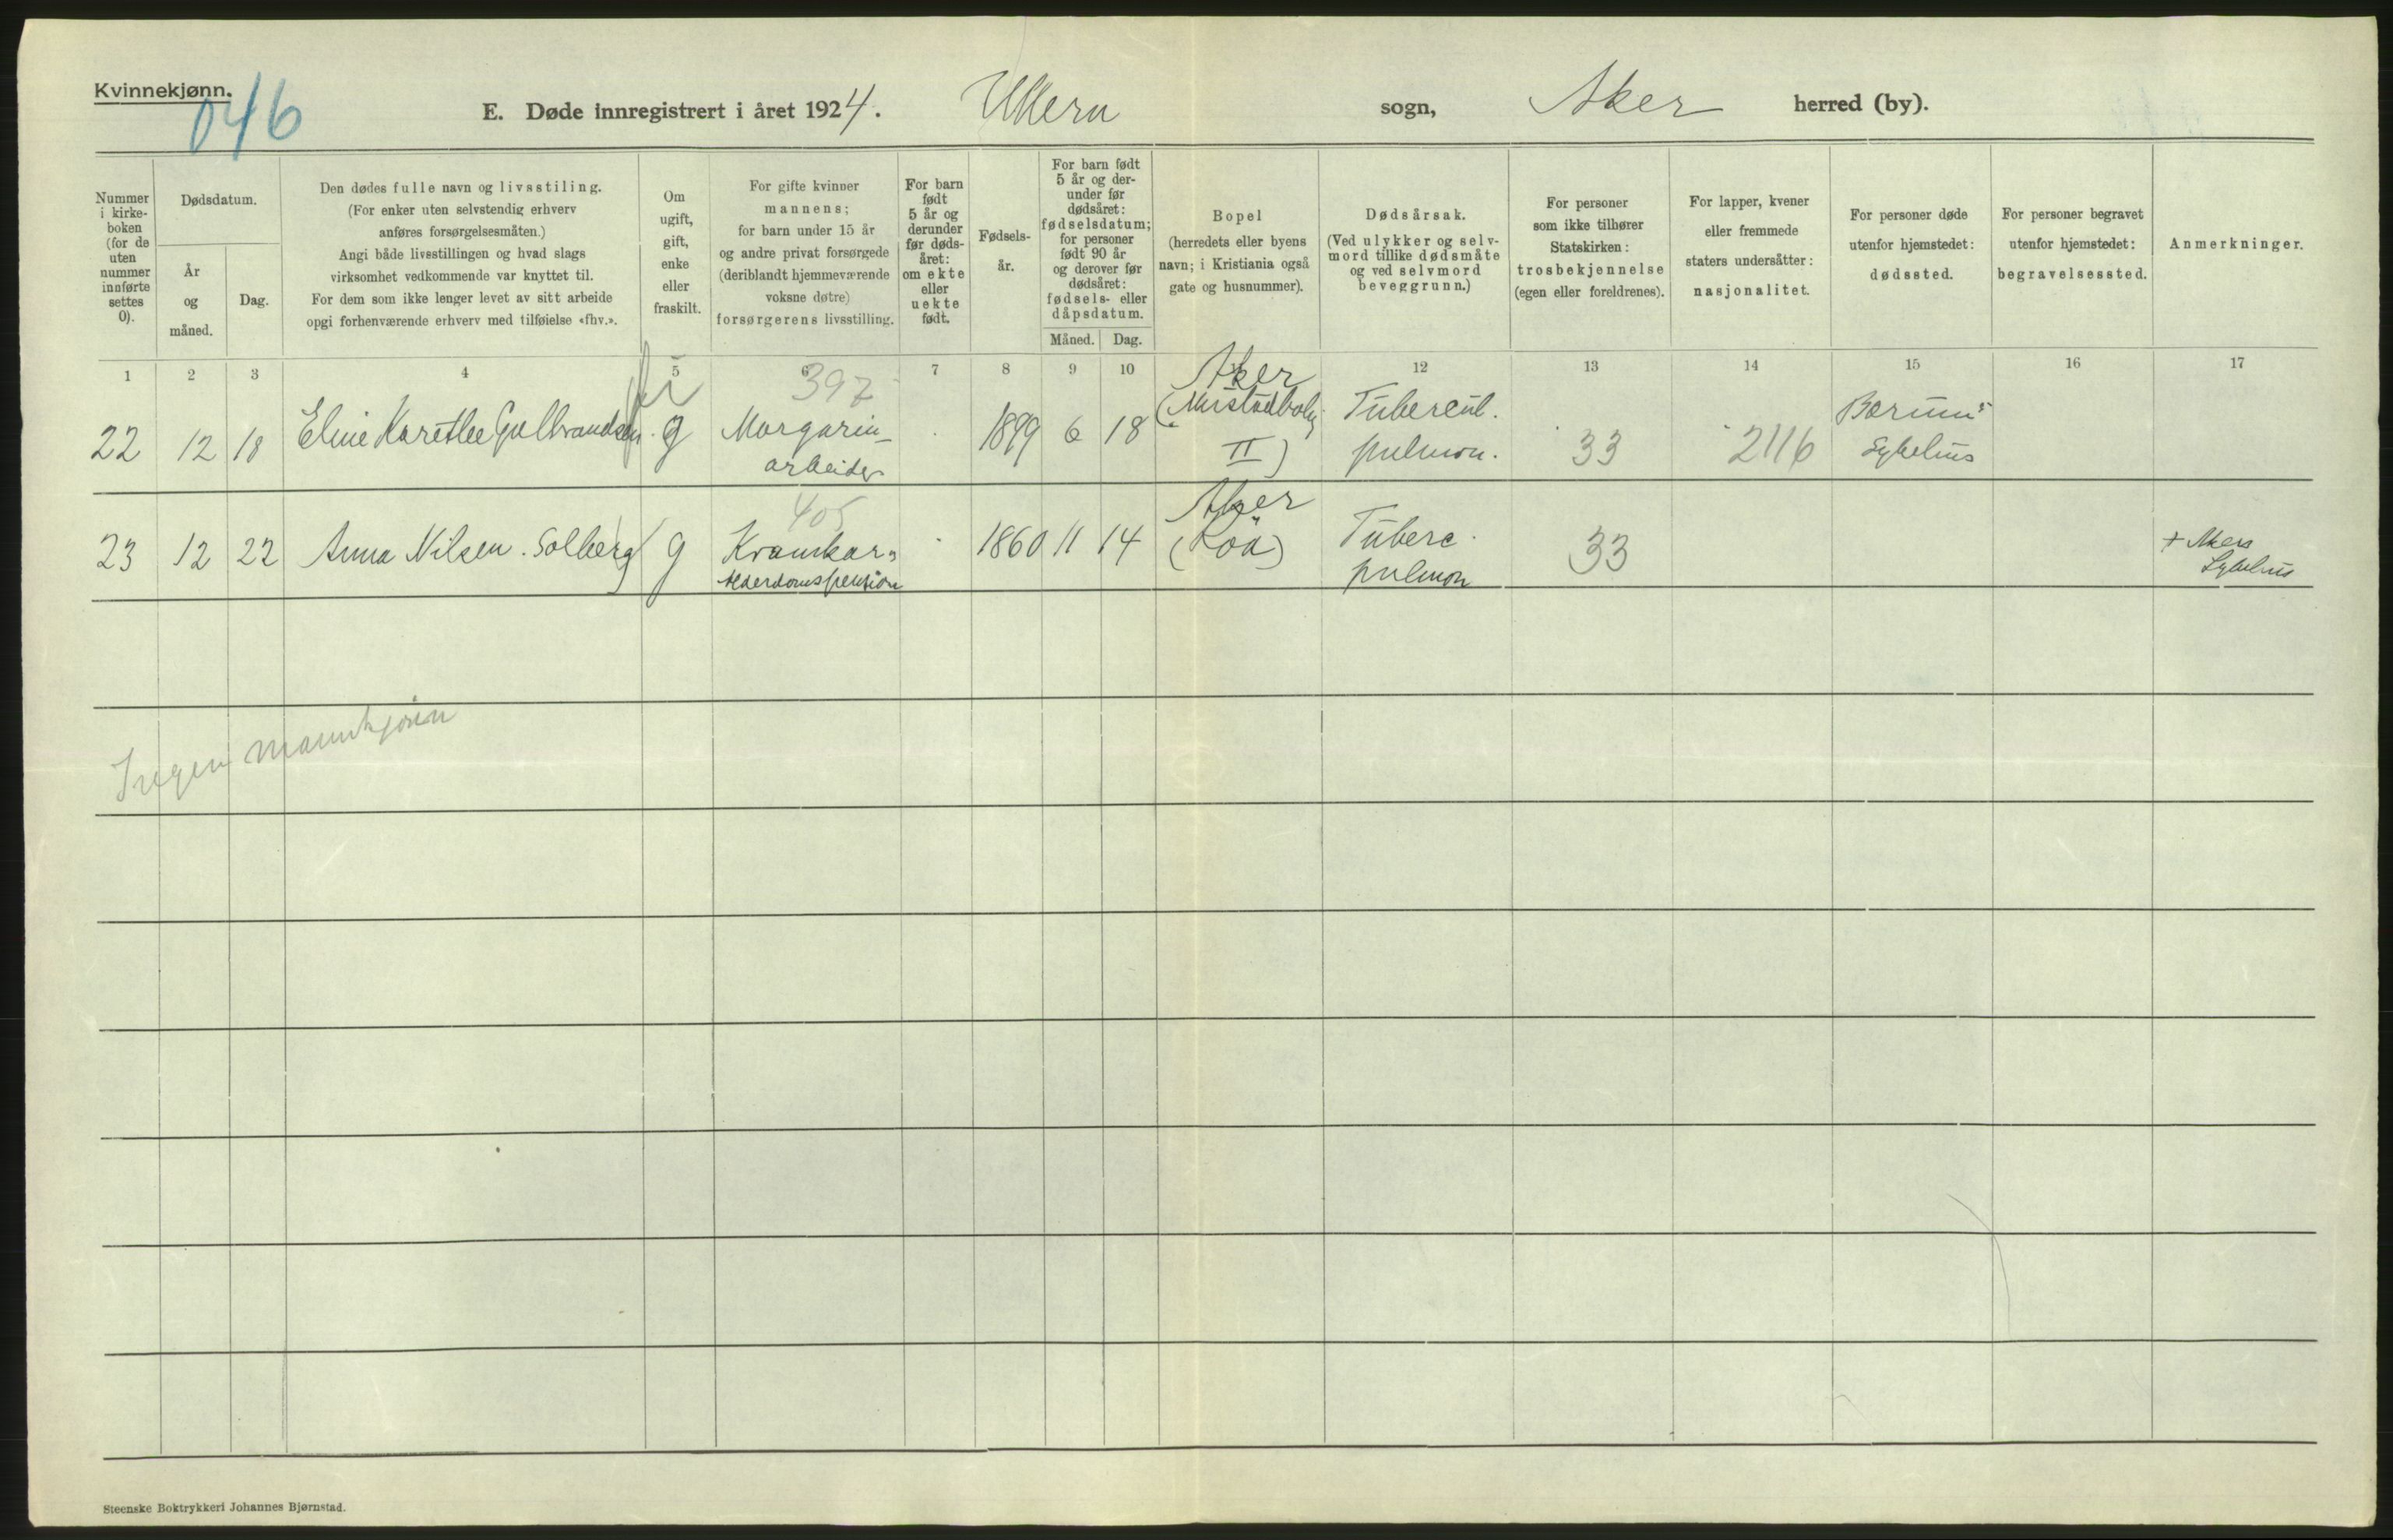 Kvinnekjønn.
046
E. Døde innregistrert i året 1924. Ullern sogn, Aker herred (by).
Nummer
i kirke-
boken
(for de
uten
nummer
innførte
settes
0).
Dødsdatum.
År
og
måned.
Dag.
Den dødes fulle navn og livsstiling.
(For enker uten selvstendig erhverv
anføres forsørgelsesmåten.)
Angi både livsstillingen og hvad slags
virksomhet vedkommende var knyttet til.
For dem som ikke lenger levet av sitt arbeide
opgi forhenværende erhverv med tilføielse «fhv.».
Om
ugift,
gift,
enke
eller
fraskilt.
For gifte kvinner
mannens;
for barn under 15 år
og andre privat forsørgede
(deriblandt hjemmeværende
voksne døtre)
forsørgerens livsstilling.
For barn
født
5 år og
derunder
før døds-
året:
om ekte
eller
uekte
født.
Fødsels-
år.
For barn født
5 år og der-
under før
dødsåret:
fødselsdatum;
for personer
født 90 år
og derover før
dødsåret:
fødsels- eller
dåpsdatum.
Måned. Dag.
Bopel
(herredets eller byens
navn; i Kristiania også
gate og husnummer).
Dødsårsak.
(Ved ulykker og selv-
mord tillike dødsmåte
og ved selvmord
beveggrunn.)
For personer
som ikke tilhører
Statskirken:
trosbekjennelse
(egen eller foreldrenes).
For lapper, kvener
eller fremmede
staters undersåtter:
nasjonalitet.
For personer døde
utenfor hjemstedet:
dødssted.
For personer begravet
utenfor hjemstedet:
begravelsessted.
Anmerkninger.
1 2 3 4 5 6 7 8 9 10 12 13 14 15 16 17
397
22 12 18 Gulbrandsen g Margarin-
arbeider
1899 6 18
Aker
II)
Tubercul.
pulmon.
33 2116
Bærums
Sykehus
405
23 12 22 Anna Nilsen Solberg g Kramkar,
Alderdomspension
1860 11 14
Aker
(Röa)
Tuberc.
pulmon
33
+ Akers
Sykehus
Ingen Mannkjønn
Steenske Boktrykkeri Johannes Bjørnstad.